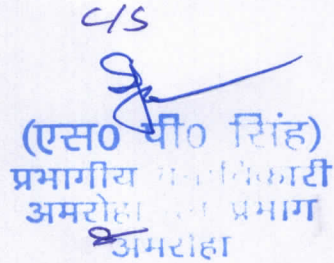 C/S
(एस० पी० सिंह)
प्रभागीय
अमरोहा प्रभाग
अमरोहा